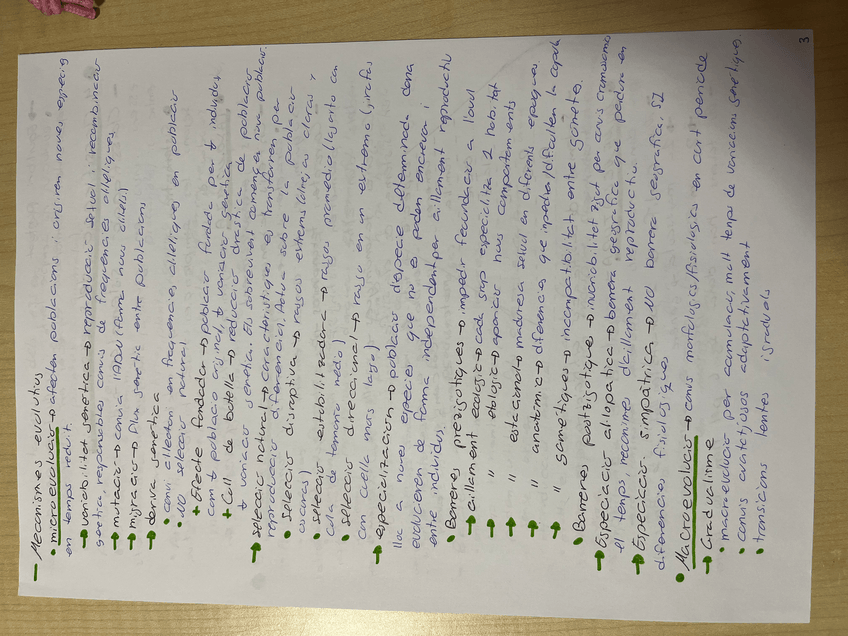 3
— Mecanismes evolutius
• microevolució → afecten poblacions i originen noves espècies
en temps reduït.
→ variabilitat genètica → reproducció sexual i recombinació
genètica, responsables canvis de freqüències al·lèliques
→ mutació → canvia l'ADN (forma nous al·lels)
→ migració → flux genètic entre poblacions
→ deriva genètica
• canvi aleatori en freqüències al·lèliques en població
• NO selecció natural
+ Efecte fundador → població fundada per ↓ individus
com ↑ població original, ↓ variació genètica
+ Coll de botella → reducció dràstica de població
↓ variació genètica. Els supervivent comença nova població.
→ selecció natural → característiques es transfereixen per
reproducció diferencial. Actua sobre la població
• selecció disruptiva → rasgos extrems (almejas claras y
oscuras)
• selecció estabilitzadora → rasgos promedio (lagarto con
cola de tamaño medio)
• selecció direccional → rasgo en un extremo (jirafas
con cuello más largo)
→ especialización → població d'espècie determinada dona
lloc a noves espècies que no es poden encreuar i
evolucionen de forma independent per aïllament reproductiu
entre individus.
• Barreres prezigòtiques → impedir fecundació a l'òvul
→ aïllament ecològic → cada grup especialitza 1 hàbitat
→ " etològic → aparició nous comportaments
→ " estacional → maduresa sexual en diferents èpoques
→ " anatòmic → diferències que impedixen/dificulten la còpula
→ " gamètiques → incompatibilitat entre gàmetes.
• Barreres postzigòtique → inviabilitat zigot per canvis cromosomes
→ Especiació al·lopàtrica → barrera geogràfica que perdura en
el temps, mecanismes d'aïllament reproductiu.
→ Especiació simpàtrica → NO barrera geogràfica, SÍ
diferències fisiològiques
• Macroevolució → canvis morfològics/fisiològics en curt període
→ Gradualisme
• macroevolució per acumulació, molt temps de variacions genètiques.
• canvis avantatjosos adaptativament
• transicions lentes i graduals